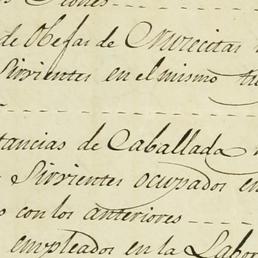 de Obejas de Morecitas
Sirvientes en el mismo
tancias de Caballada
Sirvientes ocupados en
s con los anteriores
empleados en la Labor